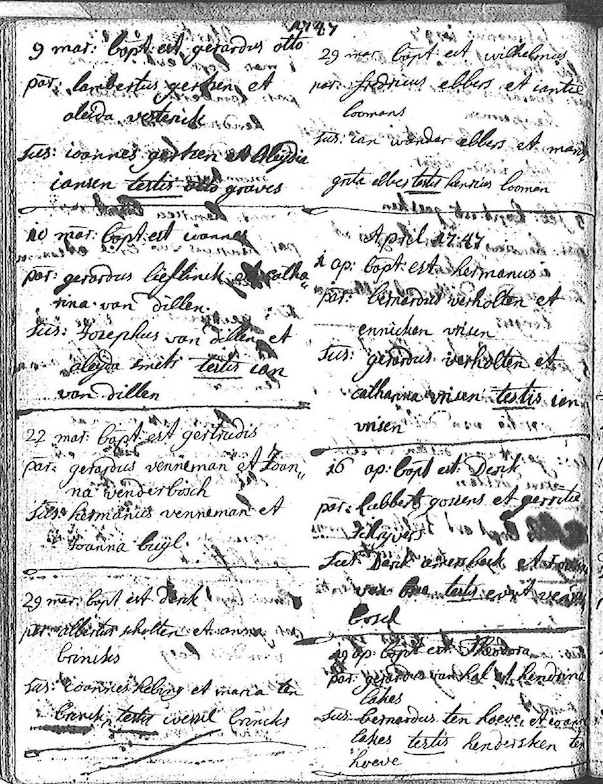 1747
9 mar: bapt est gerardus otto
par: lambertus gerssen et
aleida
sus: ioannes et Aleydis
iansen testis otto graves
10 mar: bapt est ioannes
par: gerardus lieftinck et catha„
rina van dillen.
sus: Josephus van dillen et
aleyda smits testis ian
van dillen
22 mar: bapt est gertrudis
par: gerardus venneman et Joan„
na venderbosch
sus: hermanus venneman et
Joanna buyl.
29 mar: bapt est derck
par: albertus scholten et anna
brincks
sus: ioannes hebing et maria ten
brinck, testis wessel brincks
29 mar: bapt est wilhelmus
par: fredricus ebbers et iantie
loomans
sus: ian wender ebbers et mar
grita ebbers testis henricus looman
April 1747
1 ap: bapt est hermanus
par: bernardus verholten et
enneken vrisen
sus: gerardus verholten et
catharina vrisen testis ian
vrisen
16 ap: bapt est Derck
par: lubbert gossens et gerritie
schryvers
sus: Derck et
van testis evert
bosch
29 ap: bapt est Theodora
par: gerardus van hal et hendrina
takes
sus: bernardus ten hoeve, et
takes testis hendersken ten
hoeve